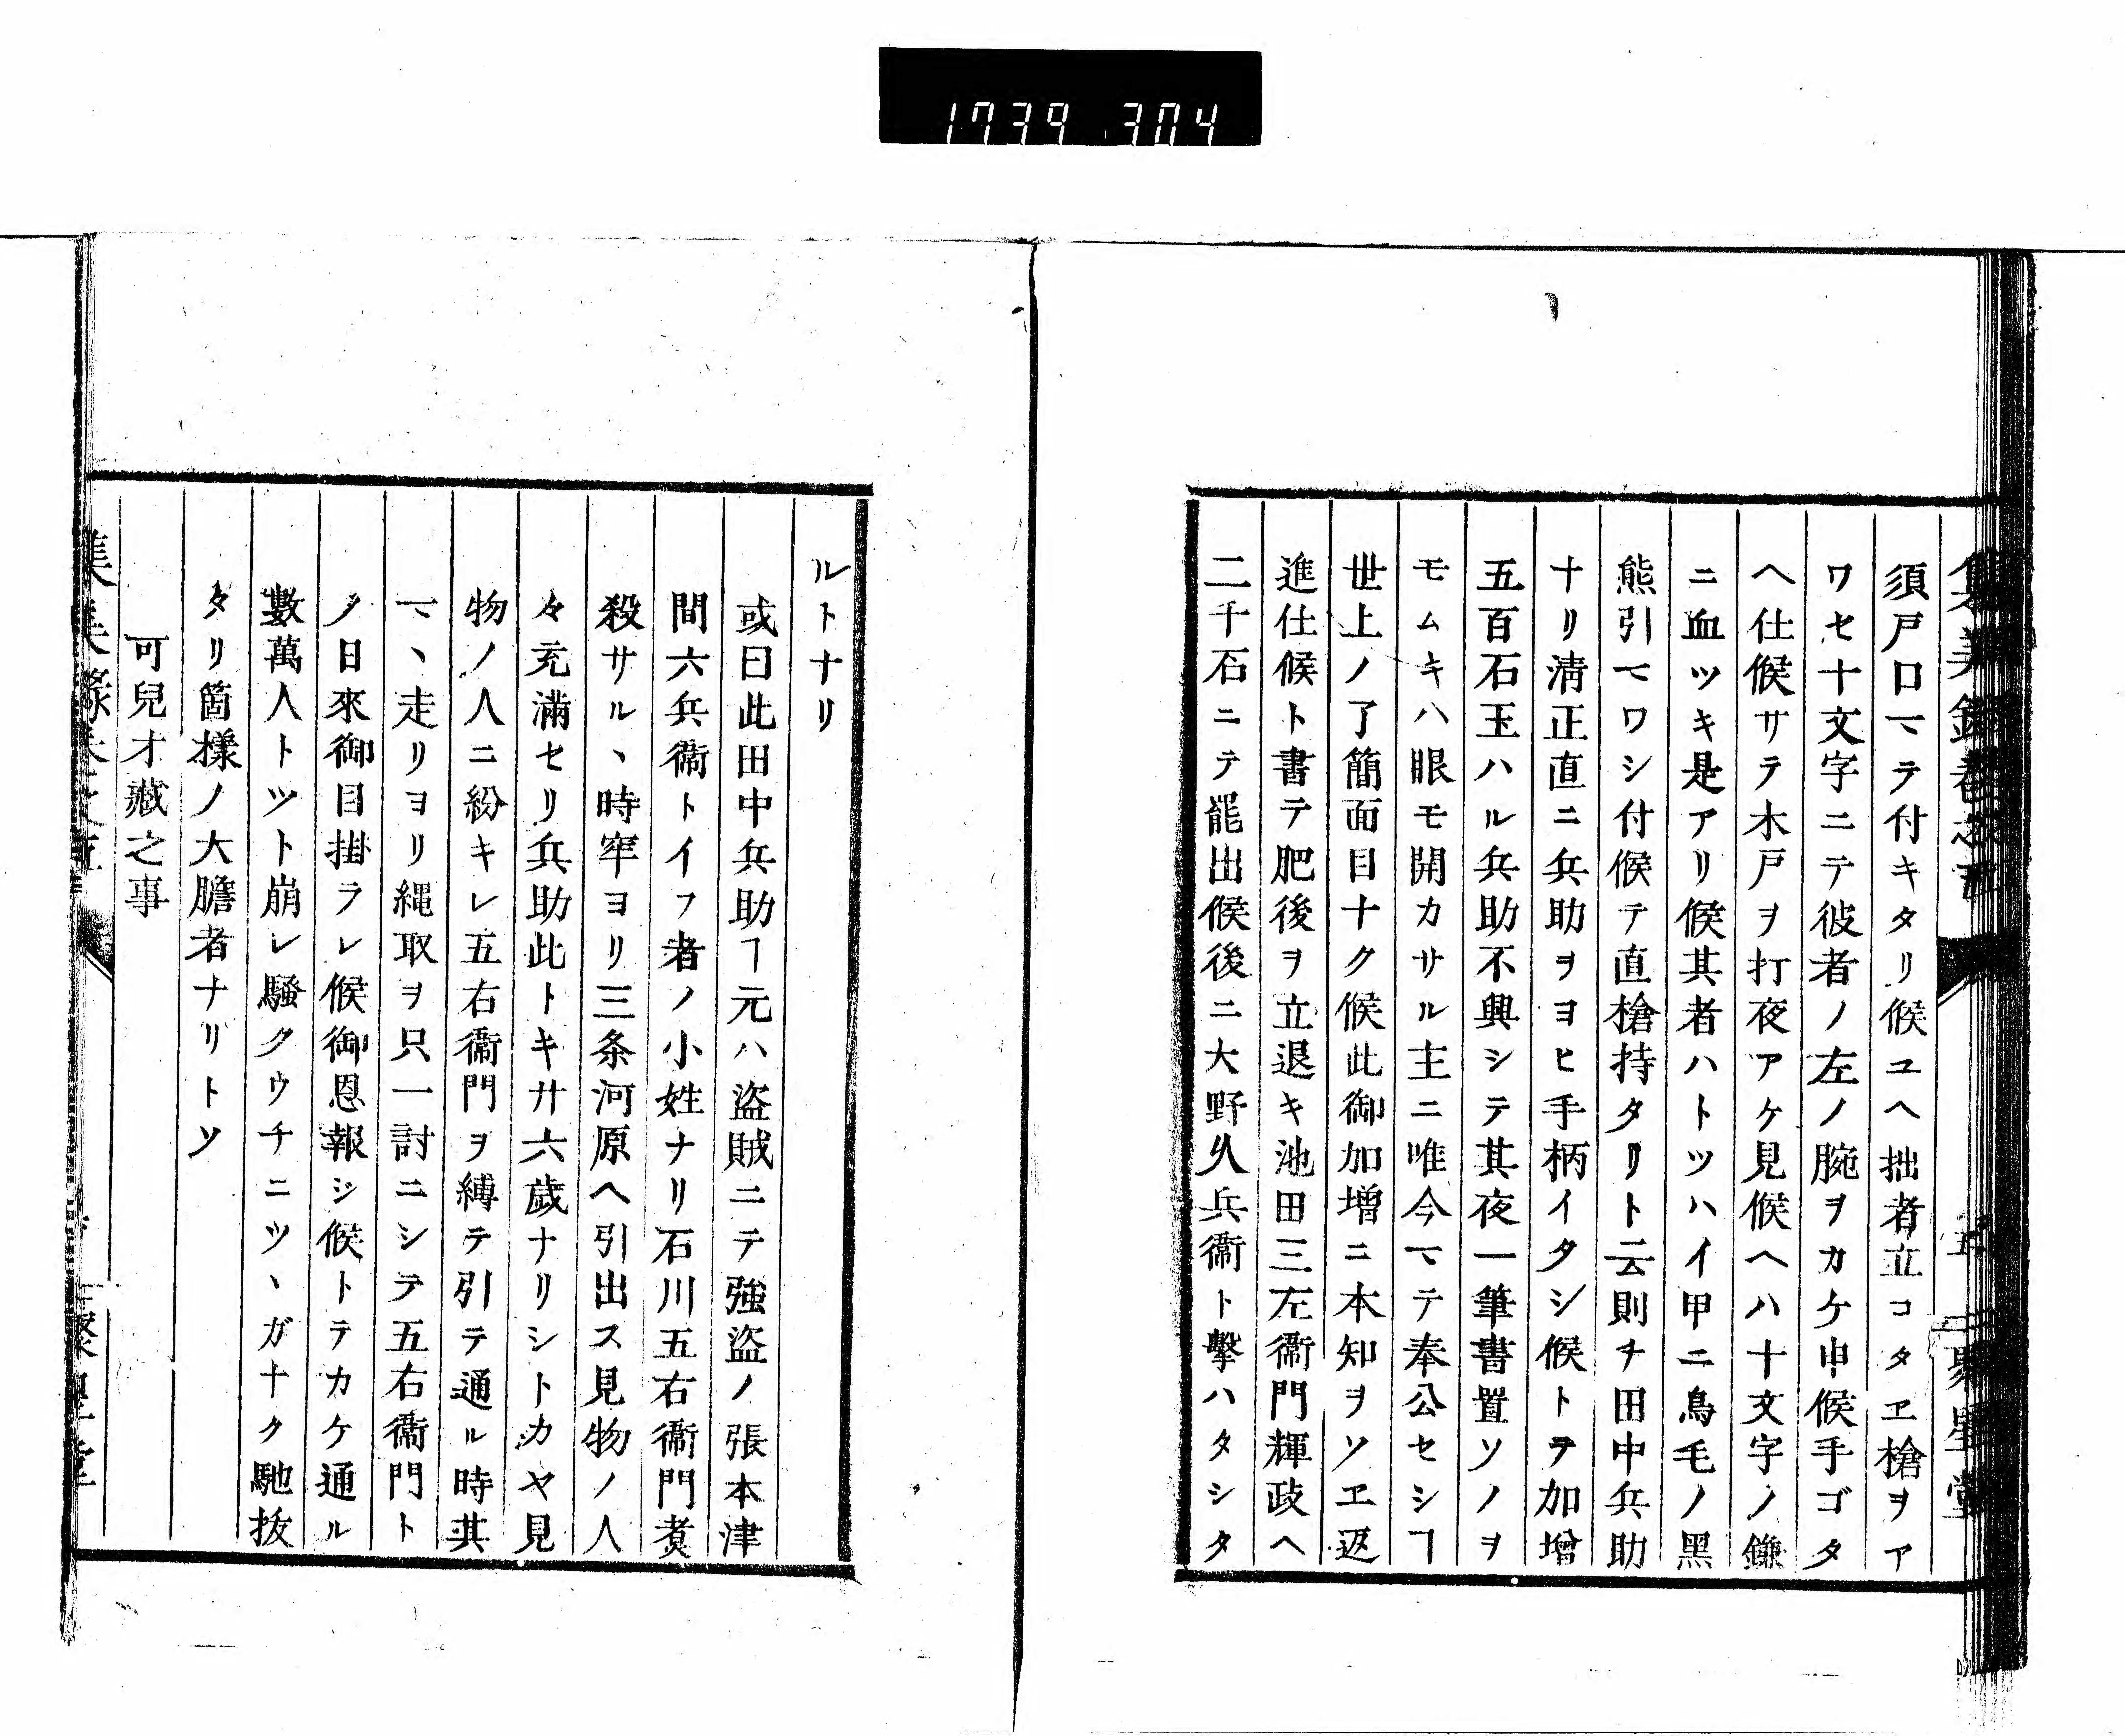 1739 304
須戸口マテ付キタリ候ユヘ拙者立コタヱ槍ヲア
ワセ十文字ニテ彼者ノ左ノ腕ヲカケ申候手ゴタ
ヘ仕候サテ木戸ヲ打夜アケ見候ヘハ十文字ノ鎌
ニ血ツキ是アリ候其者ハトツハイ甲ニ鳥毛ノ黑
熊引マワシ付候テ直槍持タリト云則チ田中兵助
ナリ清正直ニ兵助ヲヨヒ手柄イタシ候トテ加增
五百石玉ハル兵助不興シテ其夜一筆書置ソノヲ
モムキハ眼モ開カサル主ニ唯今マテ奉公セシヿ
世上ノ了簡面目ナク候此御加增ニ本知ヲソヱ返
進仕候ト書テ肥後ヲ立退キ池田三左衞門輝政ヘ
二千石ニテ罷出候後ニ大野久兵衞ト擊ハタシタ
ルトナリ
或曰此田中兵助ヿ元ハ盜賊ニテ強盜ノ張本津
間六兵衞トイフ者ノ小姓ナリ石川五右衞門煑
殺サル丶時牢ヨリ三条河原ヘ引出ス見物ノ人
々充滿セリ兵助此トキ廾六歲ナリシトカヤ見
物ノ人ニ紛キレ五右衞門ヲ縛テ引テ通ル時其
マ丶走リヨリ縄取ヲ只一討ニシテ五右衞門ト
ノ日來御目掛ラレ候御恩報シ候トテカケ通ル
數萬人トツト崩レ騷クウチニツ丶ガナク馳拔
タリ箇樣ノ大膽者ナリトソ
可兒才藏之事